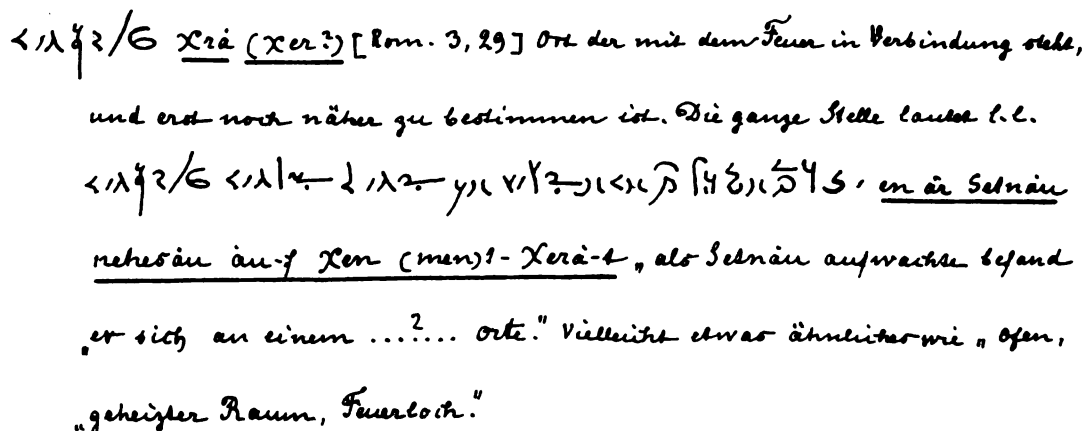 χrȧ (χer?) [Rom. 3,29] Ort der mit dem Feuer in Verbindung steht,
und erst noch näher zu bestimmen ist. Die ganze Stelle lautet l.l.
en år Setnȧu
nehesȧu ȧu-f χen (men)?-χerȧ-t „als Setnȧu aufwachte befand
„er sich an einem ...?... orte." Vielleicht etwas ähnliches wie „Ofen,
„geheizter Raum, Feuerloch."